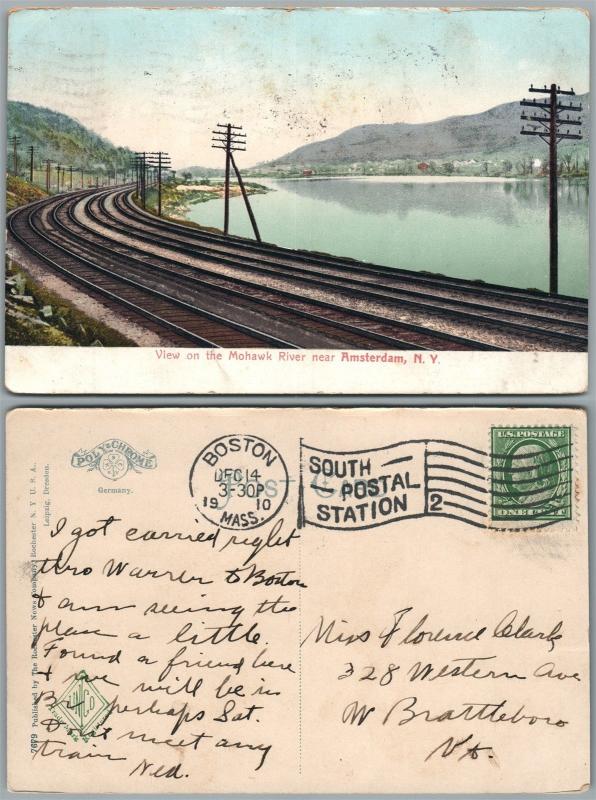 View on the Mohawk River near Amsterdam, N. Y.
POLY-CHROME
Germany.
BOSTON
DEC 14
3-30P
19 10
MASS.
SOUTH
POSTAL
STATION
2
POST CARD
U.S. POSTAGE
ONE CENT
7679 Published by The Rochester News Company, Rochester N. Y. U. S. A.
Leipzig, Dresden.
I got carried right
thro Warren to Boston
& am seeing the
place a little.
Found a friend here
& we will be in
Br. perhaps Sat.
Dont meet any
train Ned.
Miss Florence Clark
328 Western Ave
W Brattleboro
Vt.